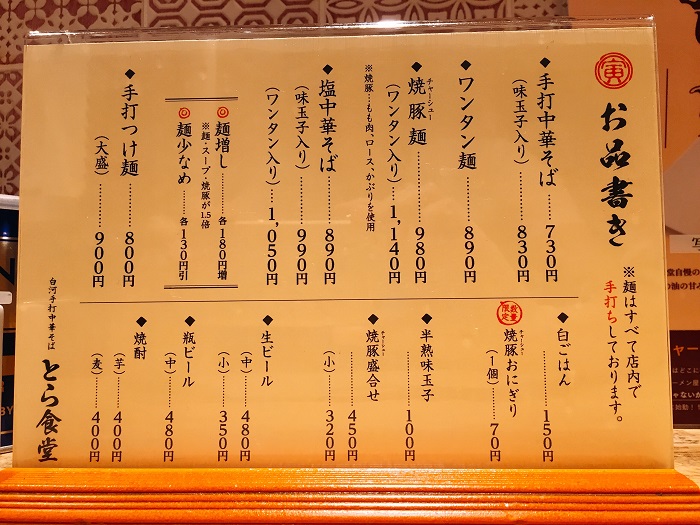 寅
お品書き
※麺はすべて店内で
手打ちしております。
◆手打中華そば………730円
（味玉子入り）………830円
◆ワンタン麺………890円
チャーシュー
◆焼豚麺………980円
（ワンタン入り）…1,140円
※焼豚…もも肉、ロース、かぶりを使用
◆塩中華そば………890円
（味玉子入り）………990円
（ワンタン入り）…1,050円
麺増し………各180円増
※麺・スープ・焼豚が1.5倍
麺少なめ………各130円引
◆手打つけ麺………800円
（大盛）………900円
◆白ごはん………150円
数量限定
チャーシュー
◆焼豚おにぎり
（1個）………70円
◆半熟味玉子………100円
チャーシュー
◆焼豚盛合せ………450円
（小）………320円
◆生ビール
（中）………480円
（小）………350円
◆瓶ビール
（中）………480円
◆焼酎
（芋）………400円
（麦）………400円
白河手打中華そば
とら食堂